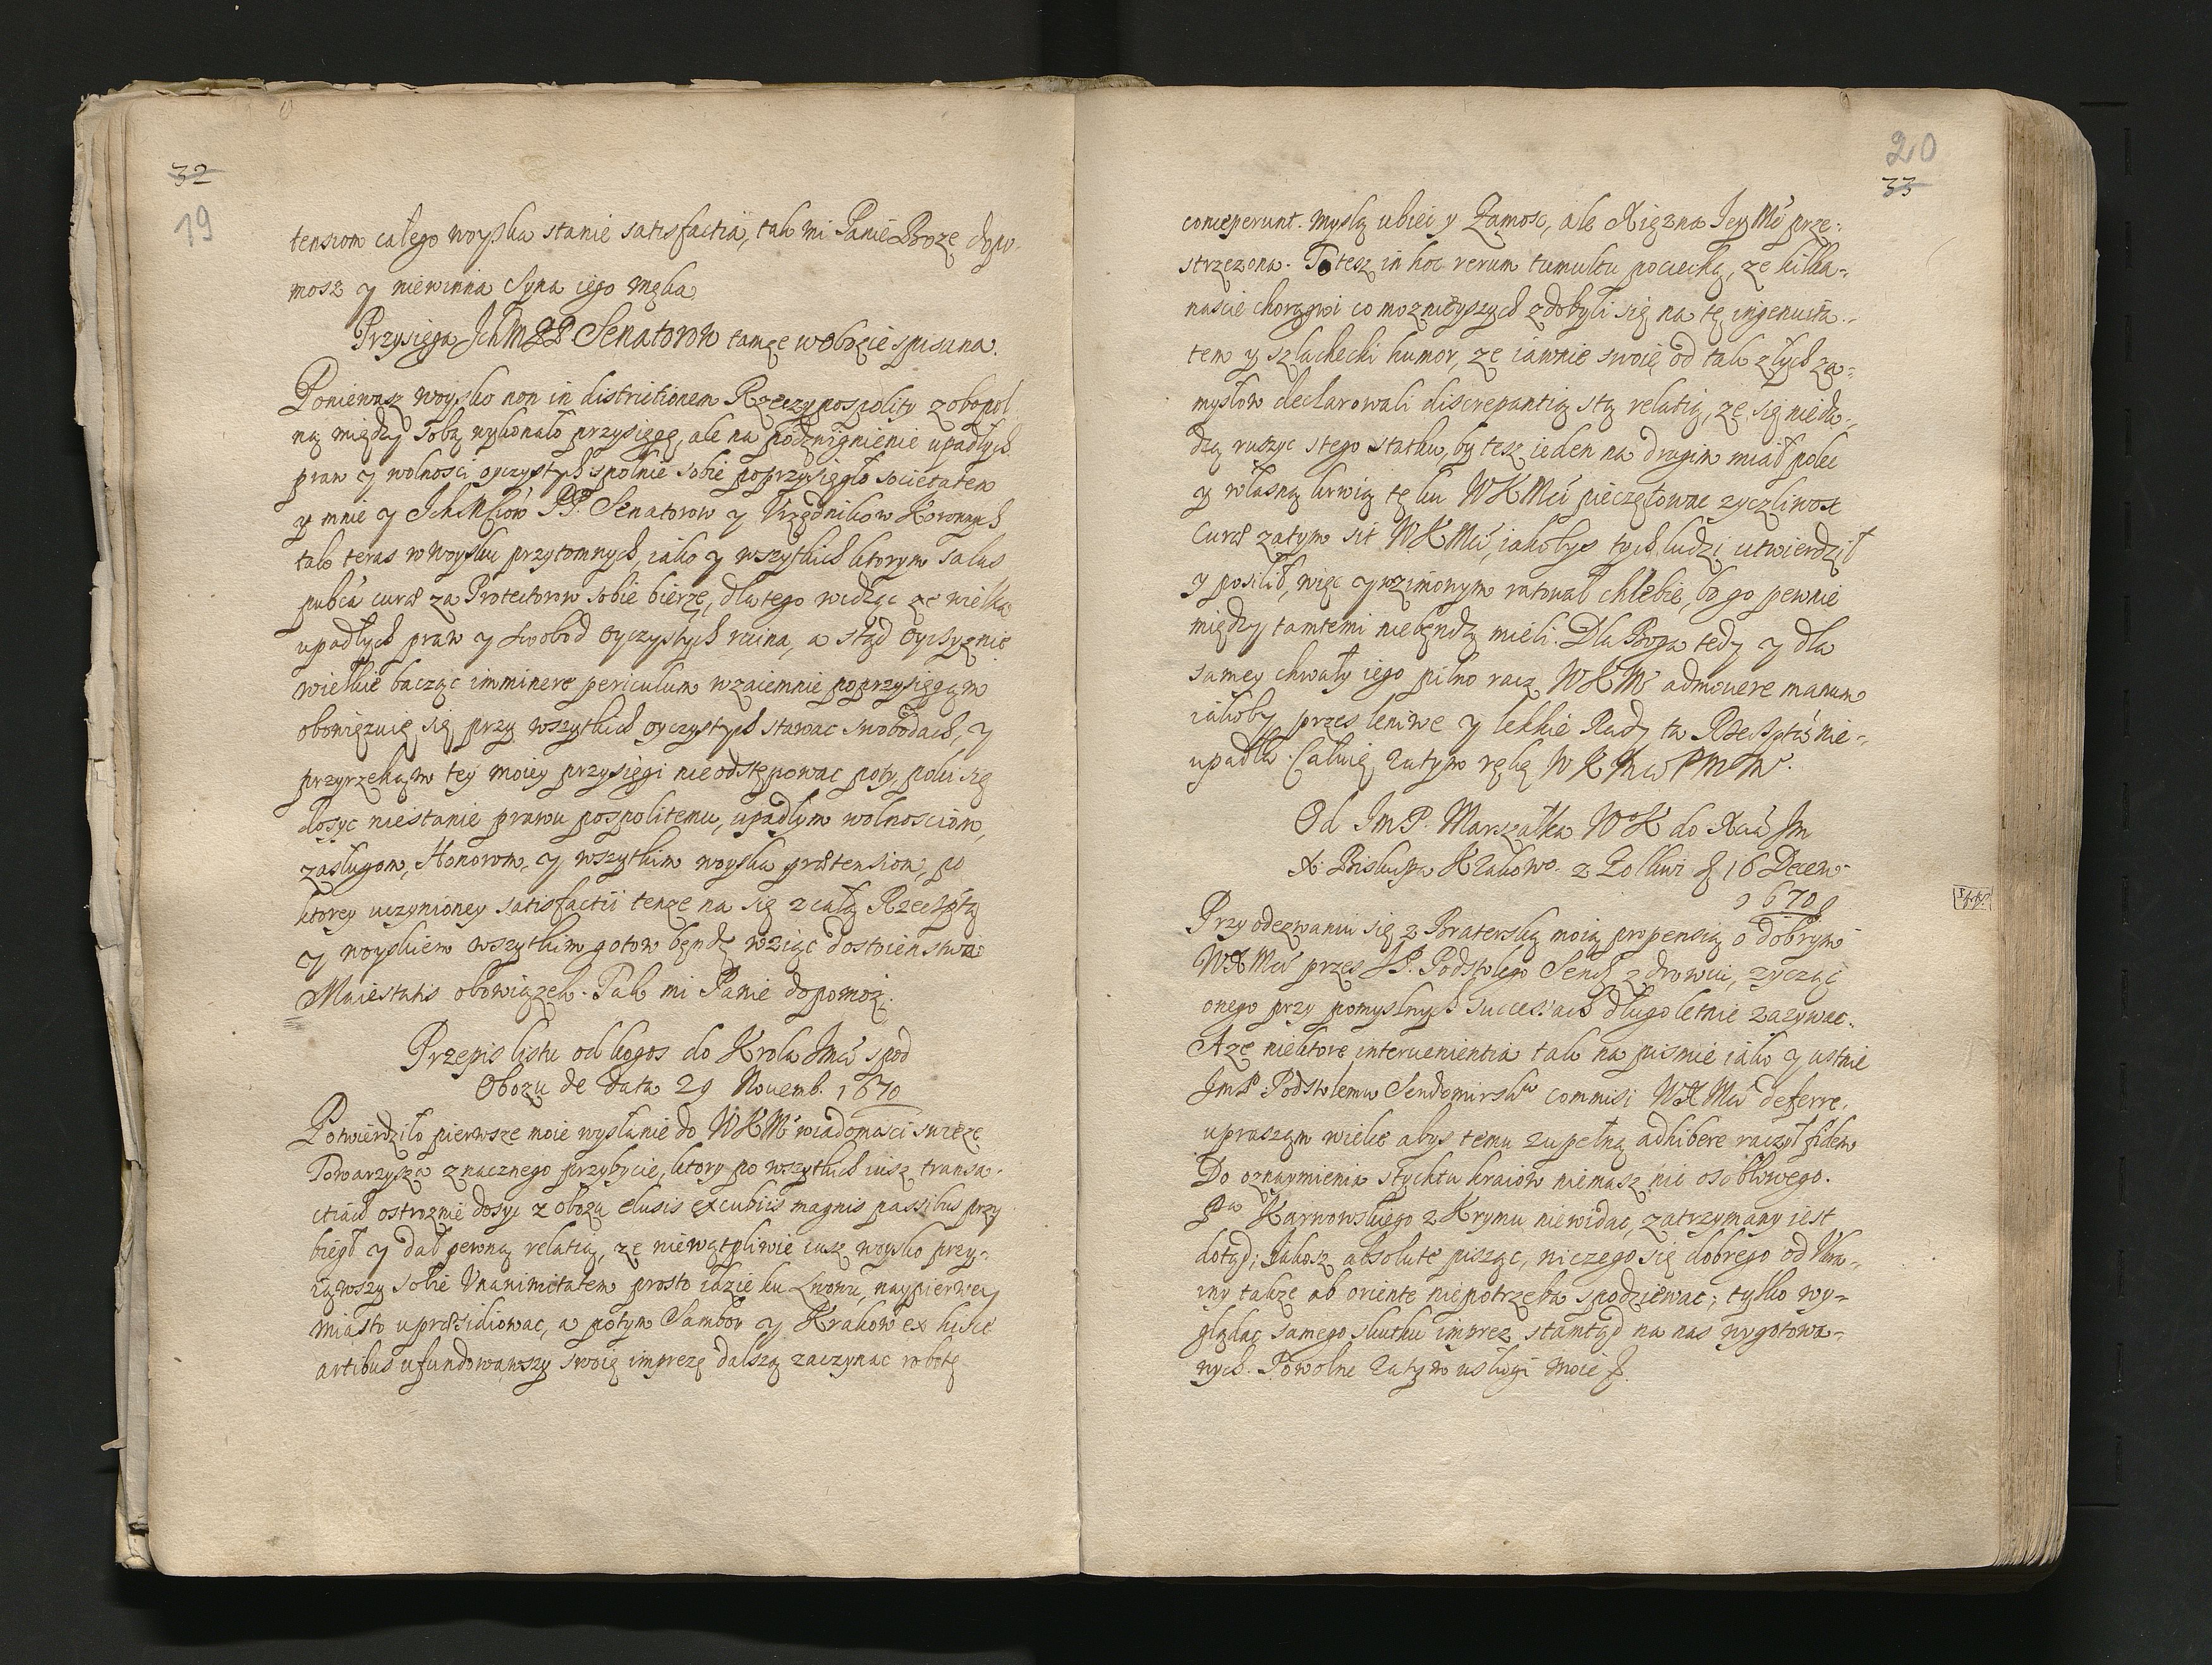 32
19
tensiom całego woyska stanie satisfactia, tak mi Panie Boze dopo-
mosz y niewinna Syna iego męka
Przysięga Ich M PP Senatorow tamze w obozie spisana.
Poniewasz woysko non in districtionem Rzeczypospolity zobopol
ną między sobą wykonało przysięgę, ale na podzwignienie upadłych
praw y wolnosci oyczystych spolnie sobie poprzysięgło societatem
y mnie y Ich Mciow PP. Senatorow y Urzędnikow Koronnych
tak teras w woysku przytomnych, iako y wszystkich ktorym salus
pubca curæ za Protectorow sobie bierze, dlatego widząc ze wielka
upadłych praw y swobod oyczystych ruina, a stąd oyczyznie
wielkie bacząc imminere periculum wzaiemnie poprzysięgam
obowięzuię się przy wszystkich oyczystych stawac swobodach, y
przyrzekam tey moiey przysięgi nieodstępowac poty poki się
dosyc niestanie prawu pospolitemu, upadłym wolnosciom,
zasługom, Honorom, y wszytkim woyska prætensiom, po
ktorey uczynioney satisfactii tenze na się z całą Rzecząptą
y woyskiem wszytkim gotow będę wziąc dostoienstwa
Maiestatis obowiązek. Tak mi Panie dopomoz.
Przepis listu od kogos do Krola Jmci spod
Obozu de data 29 Novemb. 1670
Potwierdziło pierwsze moie wysłanie do WKM wiadomosci swieze
Towarzysza znacznego przybycie, ktory po wszytkich iusz transa-
ctiach ostroznie dosyc z obozu elusis excubiis magnis passibus przy
biegł y dał pewną relatią, ze niewątpliwie iusz woysko przy-
iąwszy sobie Unanimitatem prosto idzie ku Lwowu, naypierwey
miasto upræsidiowac, a potym Sambor y Krakow ex hisce
artibus ufundowawszy swoię imprezę dalszą zaczynac robotę
20
33
conceperunt. Myslą ubiec y Zamosc, ale Xięzna Jey Mc prze-
strzezona. To tesz in hoc rerum tumultu pociechą, ze kilka-
nascie chorągwi co moznieyszych zdobyli się na tę ingenuita-
tem y szlachecki humor, ze iawnie swoię od tak złych za-
mysłow declarowali discrepantią stą relatią, ze się nieda-
dzą ruszyc stego statku, by tesz ieden na drugim miał polec
y własną krwią tę ku WKMci pieczętowac zyczliwosc
Curæ zatym sit WKMci, iakobys tych ludzi utwierdził
y posilił, więc y wzimowym ratował chlebie, bo go pewnie
między tamtemi niebędą mieli. Dla Boga tedy y dla
samey chwały iego pilno racz WKM admovere manum
iakoby przes leniwe y lekkie Rady ta Rzeczpta nie-
upadła. Całuię zatym rękę WKMci PMM.
Od JmP. Marszałka WK do Xcia Jm
X. Biskupa Krakowo. z Zolkwi d 16 Decem
1670
Przy odezwaniu się z Braterską moią propensią o dobrym
WXMci przes JP. Podstolego Send. zdrowiu, zycząc
onego przy pomyslnych Successach długoletnie zazywac.
A ze niektore intervenientia tak na pismie iako y ustnie
JmP Podstolemu Sendomirsku commisi WXMci deferre,
upraszam wielce abys temu zupełną adhibere raczył fidem
Do oznaymienia stychtu kraiow niemasz nic osobliwego.
Pa Karwowskiego z Krymu niewidac, zatrzymany iest
dotąd; Jakosz absolute pisząc, niczego się dobrego od Ukra-
iny takze ab oriente niepotrzeba spodziewac; tylko wy-
glądac samego skutku imprez stamtąd na nas wygotowa-
nych. Powolne zatym usługi moie